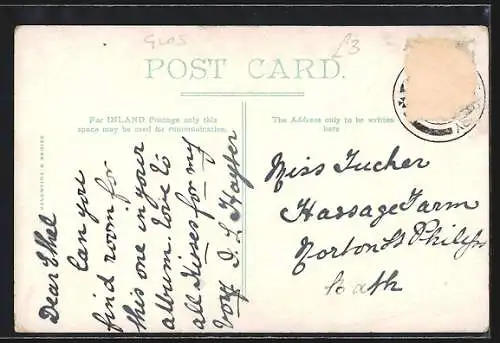 GLOS
£3
POST CARD.
For INLAND Postage only this
space may be used for communication.
The Address only to be written
here
Dear Ethel
Can you
find room for
this one in your
album love to
all Kisses for my
boy
Miss Tucker
Hassage Farm
Norton St Philips
Bath